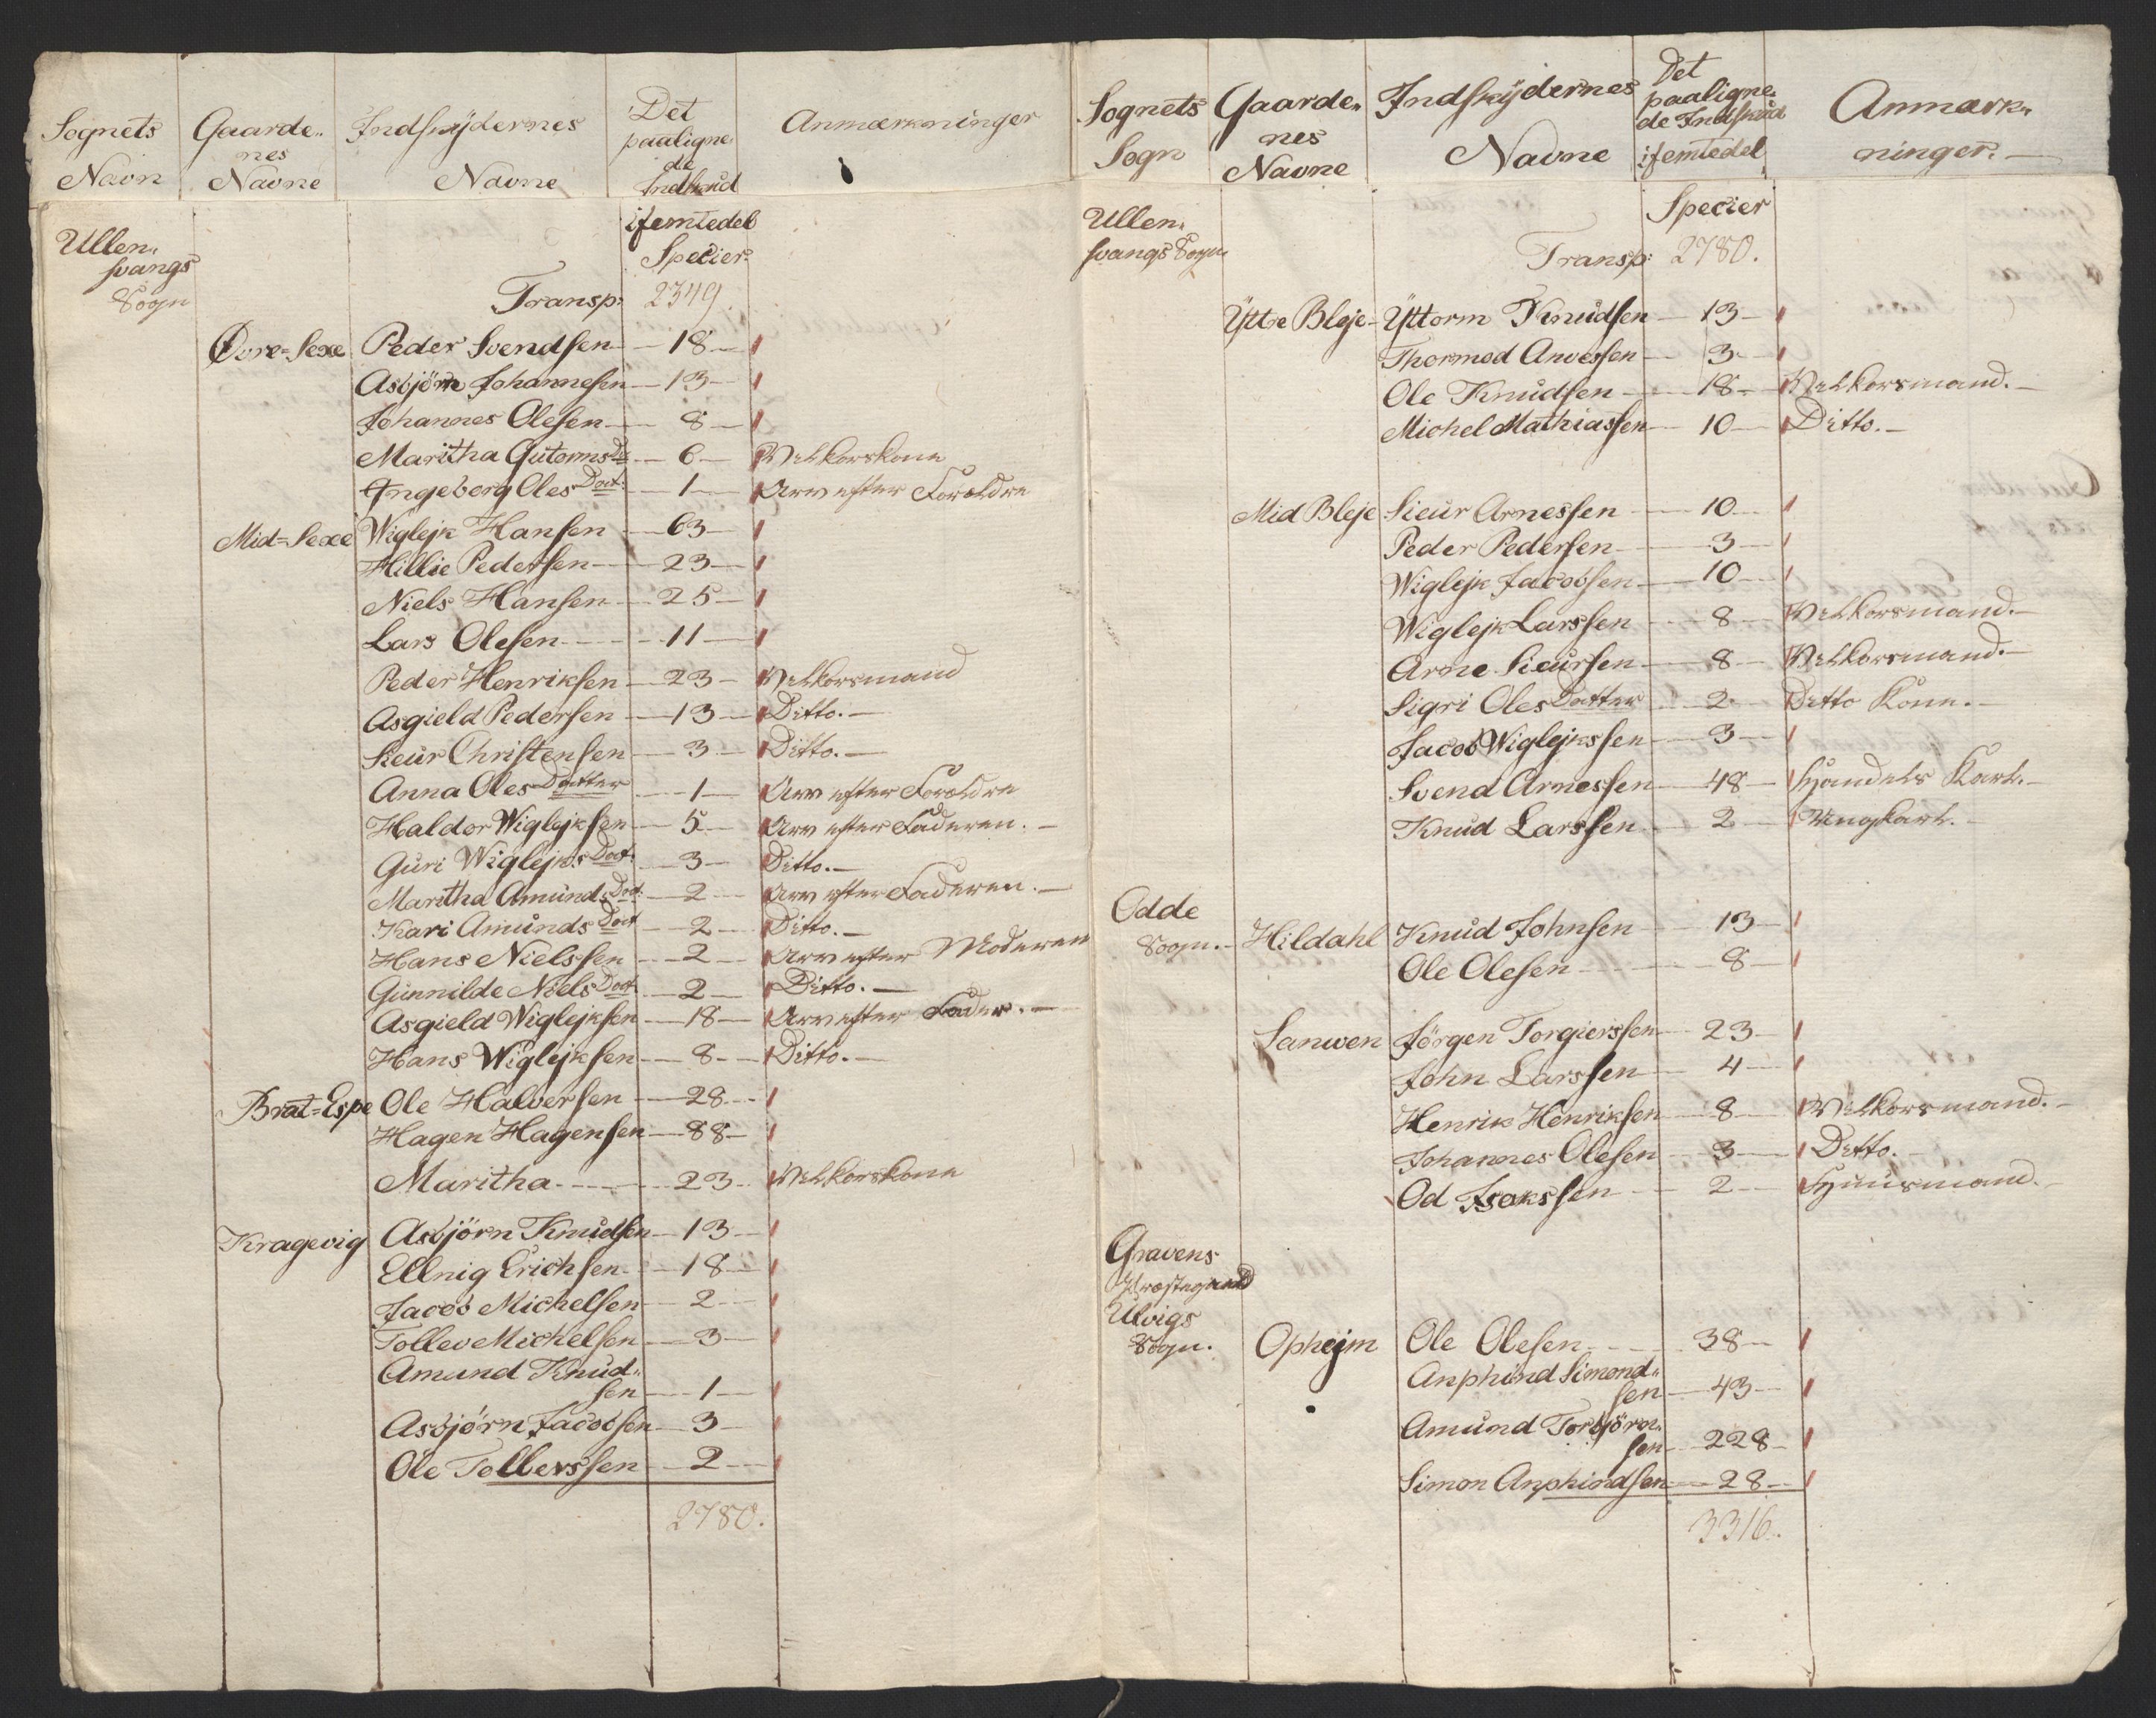 Sognets Navn | Gaarde„nes Navne | Indskÿdernes Navne | Det paaligne„de Indskud ifemtedel Specier | Anmærkninger
Ullen„svangs Sogn
Transp: 2349.
Øvre=Sexe Peder Svendsen — 18 —
Asbjörn Johannesen — 13 —
Johannes Olesen — 8 —
Maritha Gutorms Dr — 6 — Velkorskone
Ingeborg Oles Dott: — 1 — Arv efter Forældre
Mid=Sexe Wiglejk Hansen — 63 —
Hillie Pedersen — 23 —
Niels Hansen — 25 —
Lars Olesen — 11 —
Peder Henriksen — 23 — Velkorsmand
Asgield Pedersen — 13 — Ditto. —
Sieur Christensen — 3 — Ditto. —
Anna Oles Datter — 1 — Arv efter Forældre
Haldor Wiglejksen — 5 — Arv efter Faderen. —
Guri Wiglejks Dot: — 3 — Ditto. —
Maritha Amunds Dot: — 2 — Arv efter Faderen. —
Kari Amunds Dot — 2 — Ditto. —
Hans Nielssen — 2 — Arv efter Moderen
Gunnilde Niels Dot. — 2 — Ditto. —
Asgield Wiglejksen — 18 — Arv efter Fader. —
Hans Wiglejksen — 8 — Ditto. —
Brat=Espe Ole Halversen — 28 —
Hagen Hagensen — 88 —
Maritha — 23 — Velkorskone
Kragevig Asbjörn Knudsen — 13 —
Ellnig Erichsen — 18 —
Jacob Michelsen — 2 —
Tollev Michelsen — 3 —
Amund Knud„
sen — 1 —
Asbjörn Jacobsen — 3 —
Ole Tollevssen — 2 —
2780.
Sognets Sogn | Gaarde„nes Navne | Indskÿdernes Navne | Det paaligne„de Indskud ifemtedel Specier | Anmærk„ninger. —
Ullen„svangs Sogn
Transp: 2780.
Ÿttre Bleje Ÿttorm Knudsen — 13 —
Thormod Anvessen — 3 —
Ole Knudsen — 18 — Velkorsmand. —
Michel Mathiassen — 10 — Ditto. —
Mid Bleje Sieur Arnessen — 10 —
Peder Pedersen — 3 —
Wiglejk Jacobsen — 10 —
Wiglejk Larssen — 8 — Velkorsmand. —
Arne Sieursen — 8 — Velkorsmand. —
Sigri Oles Datter — 2 — Ditto Kone. —
Jacob Wiglejkssen — 3 —
Svend Arnessen — 48 — Handels Karl. —
Knud Larssen — 2 — Ungkarl. —
Odde Sogn. — Hildahl Knud Johnsen — 13 —
Ole Olesen — 8 —
Sanwen Jörgen Torgierssen — 23 —
John Larssen — 4 —
Henrik Henriksen — 8 — Velkorsmand. —
Johannes Olesen — 3 — Ditto. —
Od Isakssen — 2 — Huusmand. —
Gravens
Præstegield
Ulvigs
Sogn. Ophejm Ole Olesen — 38 —
Anphind Simond„
sen — 43 —
Amund Torbjörn„
sen — 228 —
Simon Anphindsen — 28 —
3316.